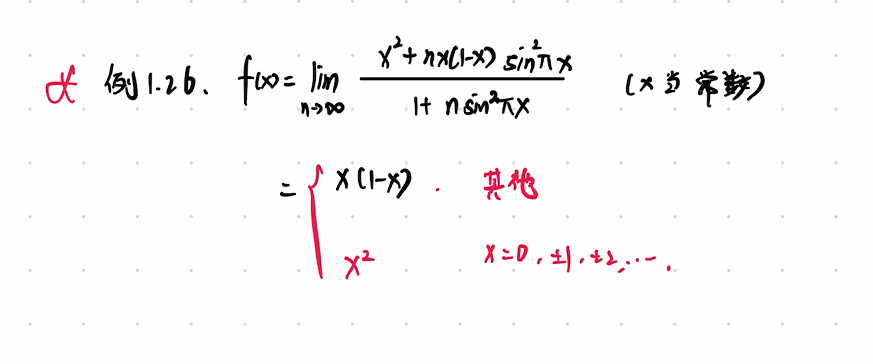 ☆ 例1.26、 f(x)=lim_{n→∞} \frac{x²+nx(1-x) sin²πx}{1+ n sin²πx} (x当常数)
= { x(1-x) . 其他
x² x=0, ±1, ±2, ….